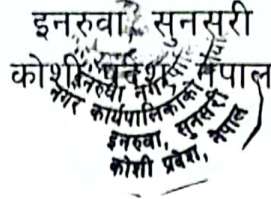 इनरुवा, सुनसरी
कोशी प्रदेश, नेपाल
इनरुवा नगर
नगर कार्यपालिकाको
इनरुवा, सुनसरी
कोशी प्रदेश, नेपाल